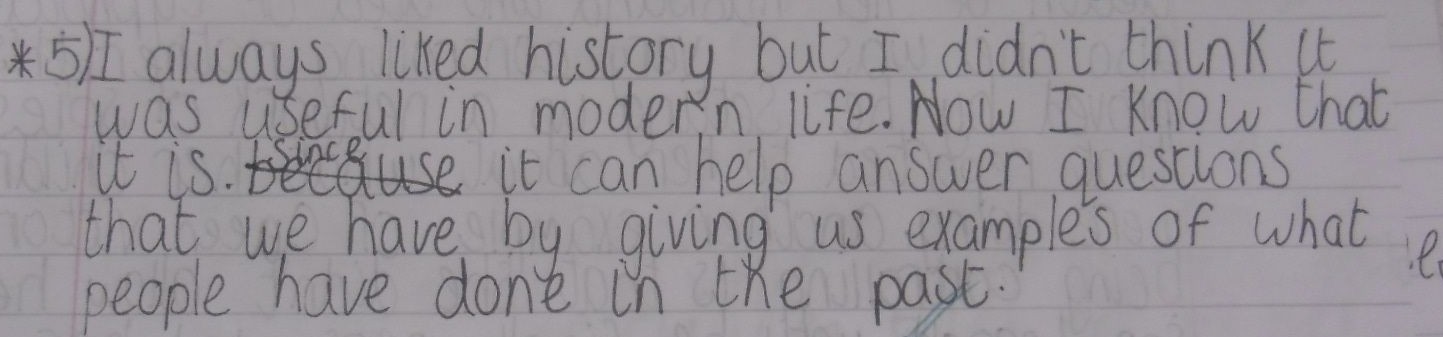 *5) I always liked history but I didn't think it
was useful in modern life. Now I know that
it is. since because it can help answer questions
that we have by giving us examples of what
people have done in the past.